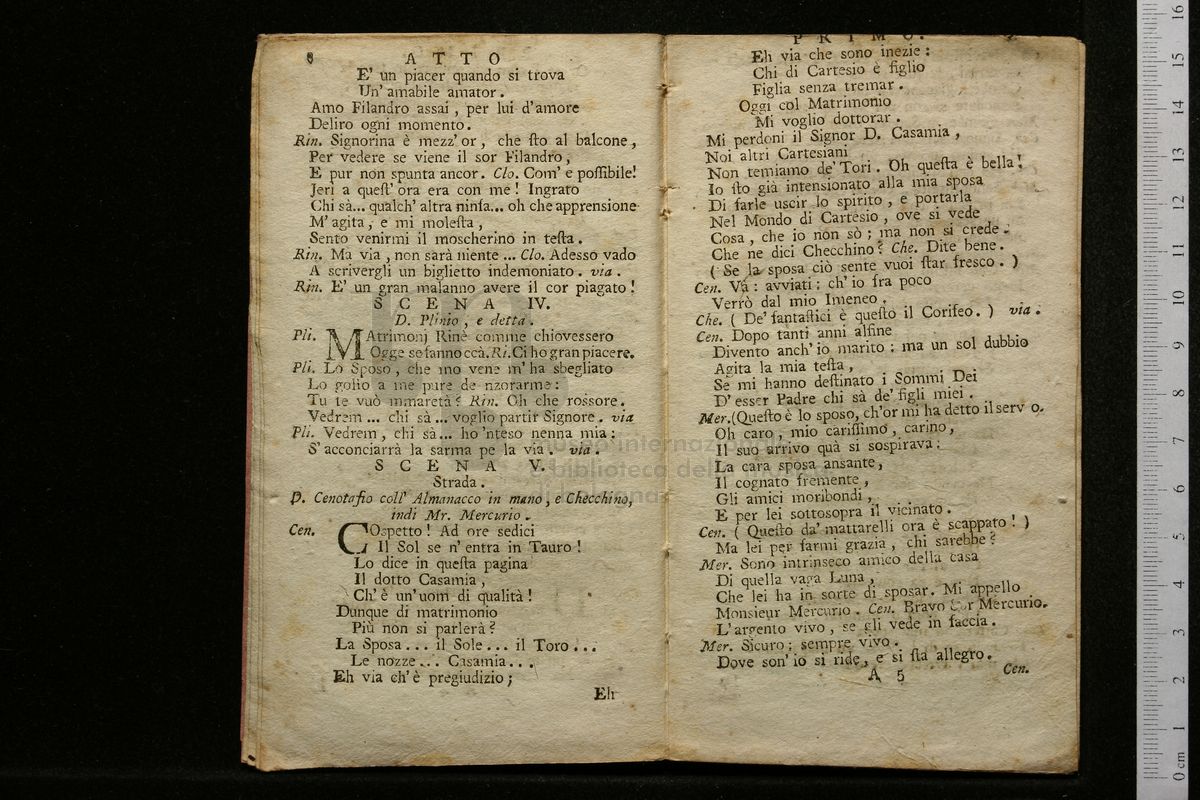 8 ATTO
E' un piacer quando si trova
Un' amabile amator.
Amo Filandro assai, per lui d'amore
Deliro ogni momento.
Rin. Signorina è mezz' or, che ſto al balcone,
Per vedere se viene il sor Filandro,
E pur non spunta ancor. Clo. Com' e poſſibile!
Jeri a queſt' ora era con me! Ingrato
Chi sà... qualch' altra ninfa... oh che apprensione
M' agita, e mi moleſta,
Sento venirmi il moscherino in teſta.
Rin. Ma via, non sarà niente ... Clo. Adesso vado
A scrivergli un biglietto indemoniato. via.
Rin. E' un gran malanno avere il cor piagato!
SCENA IV.
D. Plinio, e detta.
Pli. MAtrimonj Rinè comme chiovessero
Ogge se fanno ccà. Ri. Ci ho gran piacere.
Pli. Lo Sposo, che mo vene m' ha sbegliato
Lo golio a me pure de nzorarme:
Tu te vuò mmaretà? Rin. Oh che rossore.
Vedrem ... chi sà ... voglio partir Signore. via
Pli. Vedrem, chi sà... ho 'nteso nenna mia:
S' acconciarrà la sarma pe la via. via.
SCENA V.
Strada.
D. Cenotafio coll' Almanacco in mano, e Checchino,
indi Mr. Mercurio.
Cen. COspetto! Ad ore sedici
Il Sol se n' entra in Tauro!
Lo dice in queſta pagina
Il dotto Casamia,
Ch' è un' uom di qualità!
Dunque di matrimonio
Più non si parlerà?
La Sposa... il Sole... il Toro...
Le nozze... Casamia...
Eh via ch' è pregiudizio;
Eh
PRIMO.
Eh via che sono inezie:
Chi di Cartesio è figlio
Figlia senza tremar.
Oggi col Matrimonio
Mi voglio dottorar.
Mi perdoni il Signor D. Casamia,
Noi altri Cartesiani
Non temiamo de' Tori. Oh queſta è bella!
Io ſto già intensionato alla mia sposa
Di farle uscir lo spirito, e portarla
Nel Mondo di Cartesio, ove si vede
Cosa, che io non sò; ma non si crede.
Che ne dici Checchino? Che. Dite bene.
( Se la sposa ciò sente vuoi ſtar fresco. )
Cen. Va: avviati: ch' io fra poco
Verrò dal mio Imeneo.
Che. ( De' fantaſtici è queſto il Corifeo. ) via.
Cen. Dopo tanti anni alfine
Divento anch' io marito: ma un sol dubbio
Agita la mia teſta,
Se mi hanno deſtinato i Sommi Dei
D' esser Padre chi sà de' figli miei.
Mer. (Queſto è lo sposo, ch'or mi ha detto il serv o.
Oh caro, mio cariſſimo, carino,
Il suo arrivo quà si sospirava:
La cara sposa ansante,
Il cognato fremente,
Gli amici moribondi,
E per lei sottosopra il vicinato.
Cen. ( Queſto da' mattarelli ora è scappato! )
Ma lei per farmi grazia, chi sarebbe?
Mer. Sono intrinseco amico della casa
Di quella vaga Luna,
Che lei ha in sorte di sposar. Mi appello
Monsieur Mercurio. Cen. Bravo Mercurio.
L' argento vivo, se gli vede in faccia.
Mer. Sicuro: sempre vivo.
Dove son' io si ride, e si ſta allegro.
A 5 Cen.